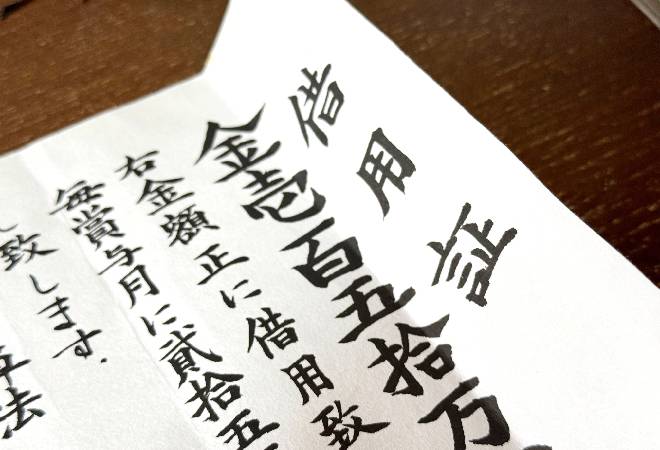 借用証
金壱百五拾万
右金額正に借用致
毎賞与月に弐拾五
致します.
法